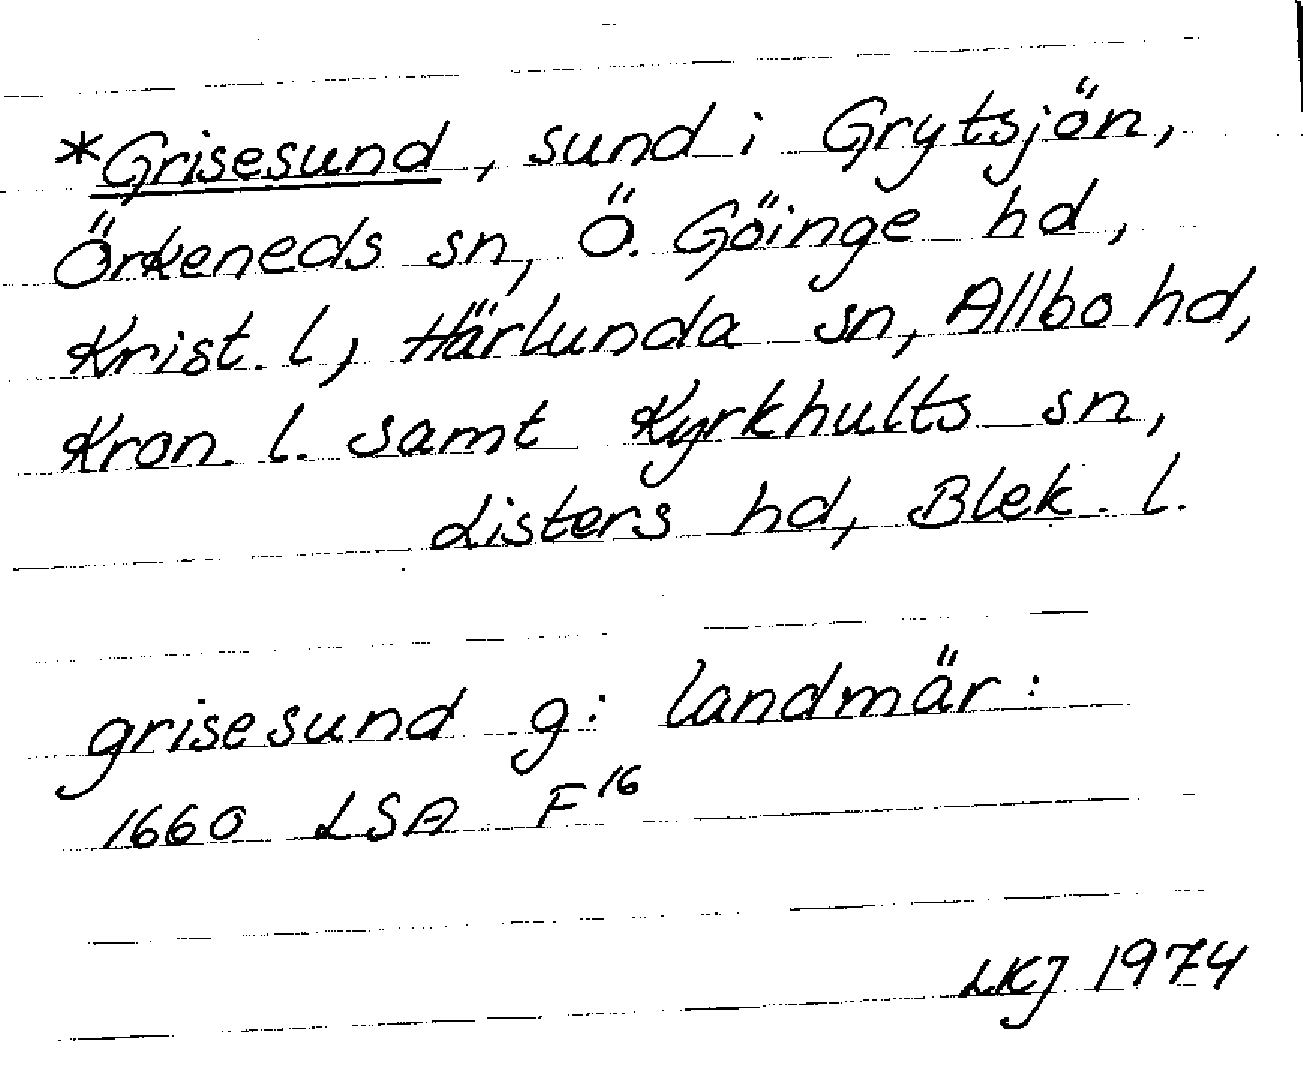 *Grisesund, sund i Grytsjön,
Örkeneds sn, Ö. Göinge hd,
Krist. l, Härlunda sn, Allbo hd,
Kron. l. samt Kyrkhults sn,
Listers hd, Blek. l.
grisesund g: landmär:
1660 LSA F16
LKJ 1974